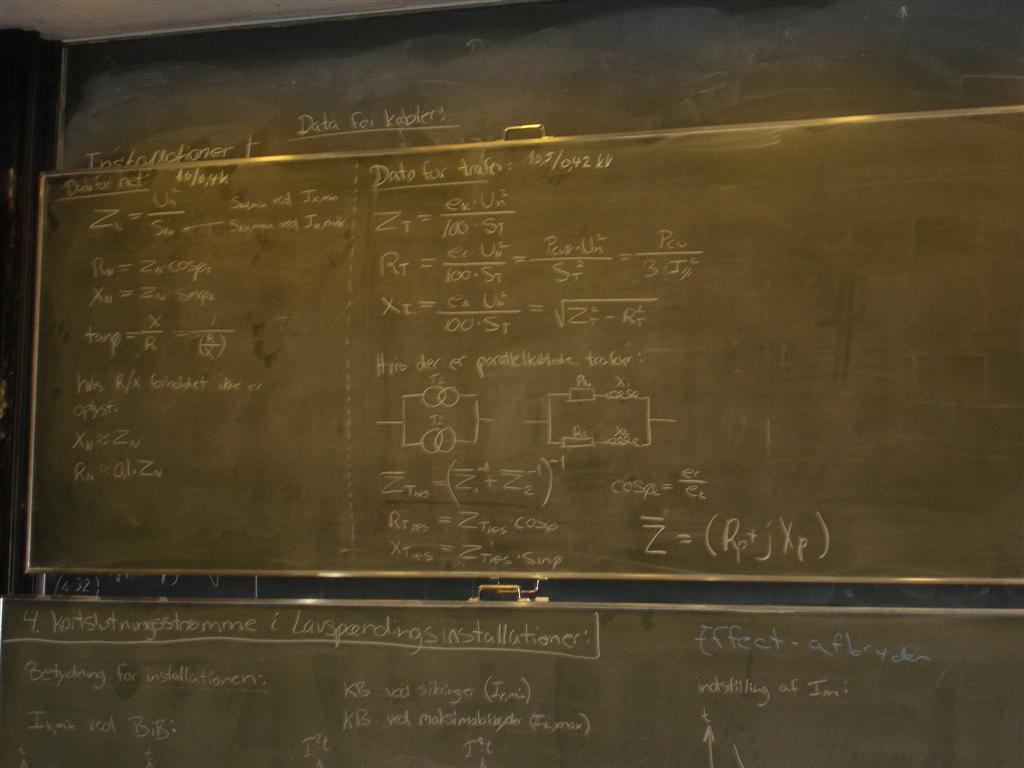 Data for kabler:
Installationer
Data for net: 10/0,4k
Z_N = U_n² / S_kN
S_kN,min ved I_k,min
S_kN,max ved I_k,max
R_N = Z_N · cosφ_k
X_N = Z_N · sinφ_k
tanφ = X/R = 1/(R/X)
hvis R/X forholdet ikke er
oplyst.
X_N ≈ Z_N
R_N ≈ 0,1 · Z_N
Data for trafo: 10,5/0,42 kV
Z_T = e_k · U_n² / 100 · S_T
R_T = e_r · U_n² / 100 · S_T = P_cu · U_n² / S_T² = P_cu / 3 · I²
X_T = e_x · U_n² / 100 · S_T = √(Z_T² − R_T²)
Hvis der er parallelkoblede trafoer:
T1
T2
X₁
X₂
Z̄_Tres = (Z̄₁⁻¹ + Z̄₂⁻¹)⁻¹
cosφ_k = er/e_k
R_Tres = Z_Tres · cosφ
X_Tres = Z_Tres · sinφ
Z̄ = (R_p + jX_p)
(s.32)
4. Kortslutningsstrømme i Lavspændingsinstallationer:
Betydning for installationen:
I_k,min ved BiB:
KB ved sikringer (I_k,min)
KB ved maksimalafbryder (I_k,max)
I²t
I²t
Effect-afbryder
indstilling af I_m:
t